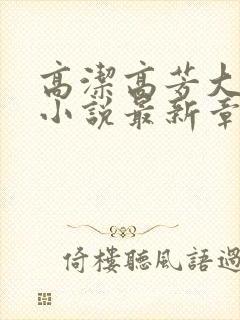 高潔高芳大
小說最新章
倚樓聽風語過